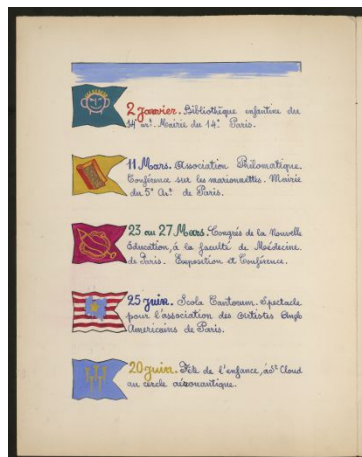 2 Janvier. Bibliothèque enfantine du
14e arrt. Mairie du 14e. Paris.
11 Mars. Association Philomatique.
Conférence sur les marionnettes. Mairie
du 5e Art. de Paris.
23 au 27 Mars. Congrès de la Nouvelle
Éducation, à la faculté de Médecine
de Paris. Exposition et Conférence.
25 juin. Scola Cantorum. Spectacle
pour l'association des Artistes Anglo
Americains de Paris.
20 juin. Fête de l'enfance, à St Cloud
au cercle aéronautique.